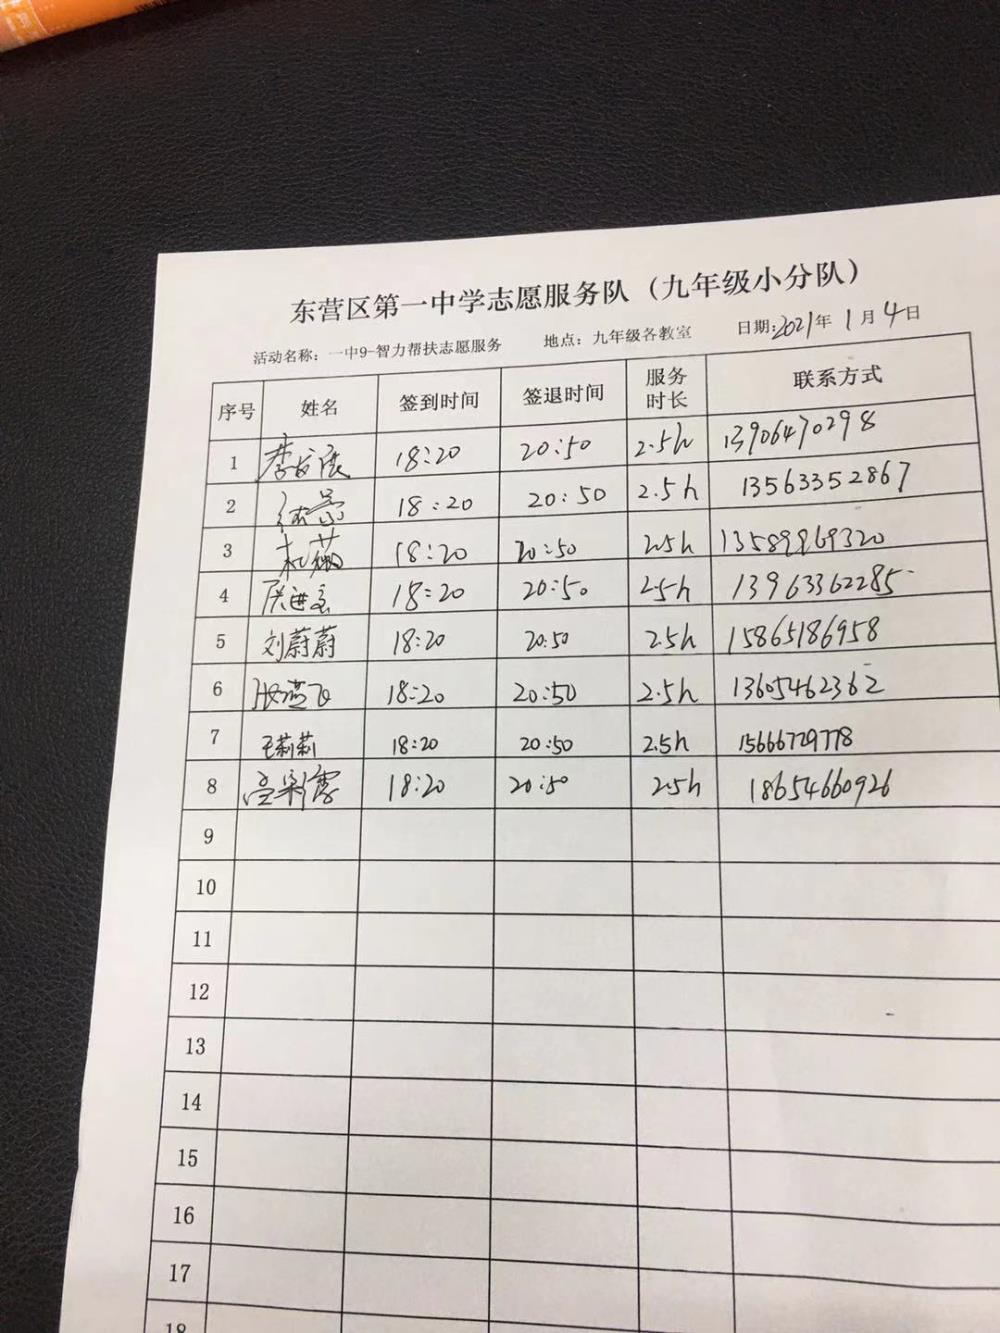 东营区第一中学志愿服务队（九年级小分队）
活动名称：一中9-智力帮扶志愿服务 地点：九年级各教室 日期:2021年1月4日
序号 姓名 签到时间 签退时间 服务时长 联系方式
1 18:20 20:50 2.5h 13906470298
2 18:20 20:50 2.5h 13563352867
3 18:20 20:50 2.5h 13589969320
4 18:20 20:50 2.5h 13963362285
5 刘蔚蔚 18:20 20:50 2.5h 15865186958
6 张燕飞 18:20 20:50 2.5h 13605462362
7 王莉莉 18:20 20:50 2.5h 15666729778
8 18:20 20:50 2.5h 18654660926
9
10
11
12
13
14
15
16
17
18